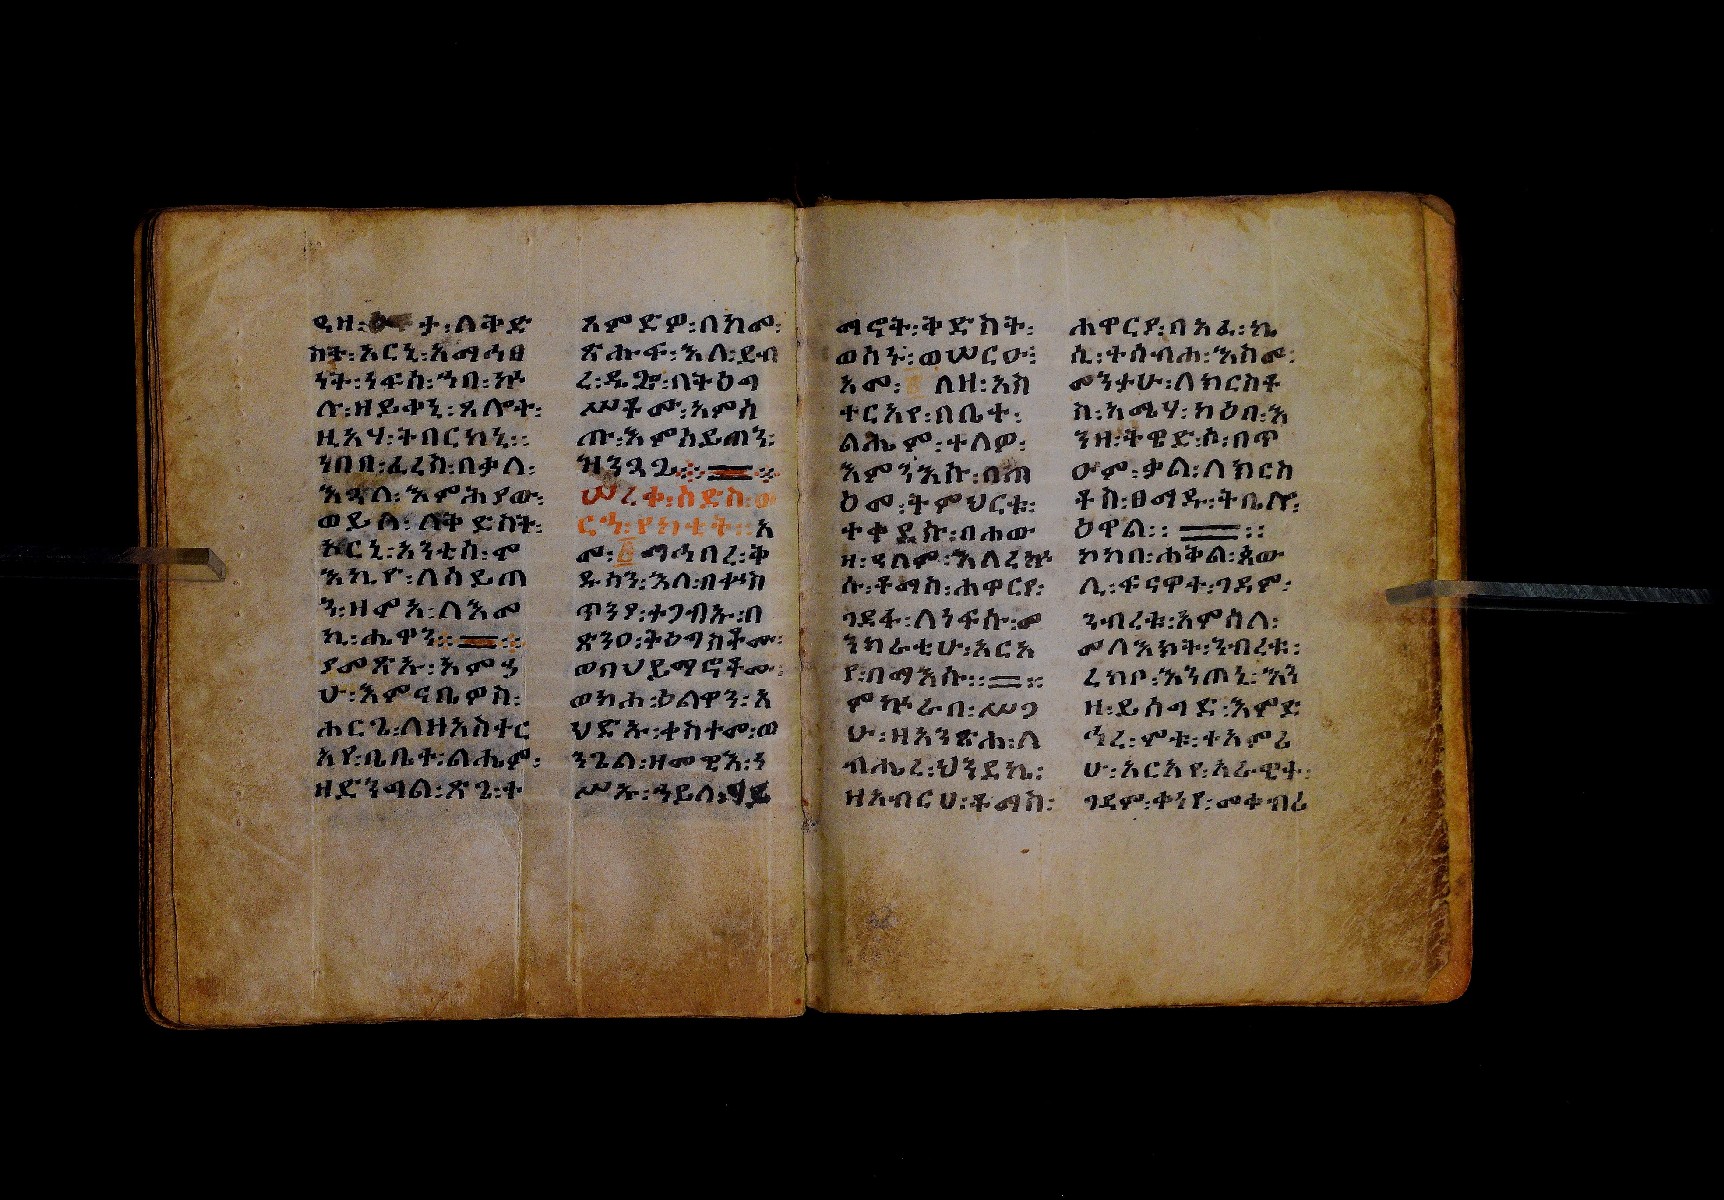 ት፡ ለቅድ
ስት፡ አርኒ፡ አማኅፀ
ንት፡ ነፍስ፡ ኀበ፡ ኵ
ሉ፡ ዘይቀኒ፡ ጸሎት፡
ዚአሃ፡ ትበርክኒ፡፡
ነበበ፡ ፈረስ፡ በቃለ፡
እጓለ፡ እምሕያው፡
ወይለ፡ ለቅድስት፡
አርኒ፡ አንቲስ፡ ሞ
እኪዮ፡ ለሰይጠ
ን፡ ዘሞአ፡ ለእመ
ኪ፡ ሔዋን፡፡
ያመጽኡ፡ እምኃ
ሁ፡ እምናቤዎስ፡
ሐርጌ፡ ለዘአስተር
አየ፡ በቤተ፡ ልሔም፡
ዘድንግል፡ ጽጌ፡ ተ
አምድዎ፡ በከመ፡
ጽሑፍ፡ እለ፡ ይብ
ረ፡ ዱጐ፡ በትዕግ
ሥቶሙ፡ አምሰ
ጡ፡ እምሰይጠን፡
ዝንጓጌ፡፡
ሠረቀ፡ ስድስ፡ ወ
ርኅ፡ የካቲት፡፡ አ
መ፡ ማኅበረ፡ ቅ
ዱሳን፡ እለ፡ በቍስ
ጥንያ፡ ተጋብኡ፡ በ
ጽንዐ፡ ትዕግስቶሙ፡
ወበህይማኖቶሙ፡
ወክሐ፡ ዕልዋን፡ አ
ህድኡ፡ ተስተመ፡ ወ
ንጌል፡ ዘመዊእ፡ ነ
ሥኡ፡ ኀይለ፡
ማኖት፡ ቅድስት፡
ወሰኑ፡ ወሠርዑ፡
አመ፡ ለዘ፡ አስ
ተርአየ፡ በቤተ፡
ልሔም፡ ተለዎ፡
እምንእሱ፡ በጠ
ዕመ፡ ትምህርቱ፡
ተቀደሱ፡ በሐው
ዘ፡ ዳሰም፡ እለረኵ
ሱ፡ ቶማስ፡ ሐዋርየ፡
ገደፋ፡ ለነፍሱ፡ መ
ንክራቲሁ፡ አርአ
የ፡ በማእሱ፡፡
ምኵራበ፡ ሥጋ
ሁ፡ ዘአንጽሐ፡ ለ
ብሔረ፡ ህንደኬ፡
ዘአብርሀ፡ ቶማስ፡
ሐዋርየ፡ በአፈ፡ ኬ
ሲ፡ ተሰብሐ፡ እስመ፡
መንታሁ፡ ለክርስቶ
ስ፡ አሜሃ፡ ካዕበ፡ አ
ንዘ፡ ትዌድሶ፡ በጥ
ዑም፡ ቃል፡ ለክርስ
ቶስ፡ ፀማዱ፡ ትቤሎ፡
ዕዋል፡፡
ኮከበ፡ ሐቅል፡ ጳው
ሊ፡ ፍናዋተ፡ ገዳም፡
ንብረቱ፡ እምሰለ፡
መለአክት፡ ንብረቱ፡
ረከቦ፡ እንጠኒ፡ እን
ዘ፡ ይሰግድ፡ እምድ
ኅረ፡ ሞቱ፡ ተአምሪ
ሁ፡ አርአየ፡ አራዊተ፡
ገዳም፡ ቀነየ፡ መቀብሪ